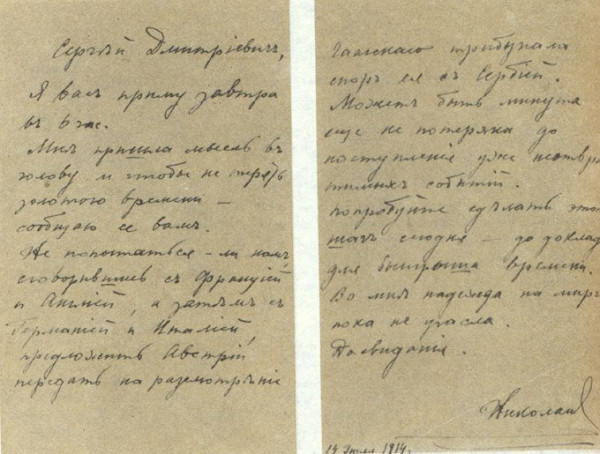 Сергѣй Дмитріевичъ,
Я васъ приму завтра
въ 6 час.
Мнѣ пришла мысль въ
голову и чтобы не терять
золотого времени –
сообщаю ее вамъ.
Не попытаться – ли намъ
сговорившись съ Франціей
и Англіей, а затѣмъ съ
Германіей и Италіей,
предложить Австріи
передать на разсмотрѣніе
Гаагскаго трибунала
споръ ея съ Сербіей.
Можетъ быть минута
еще не потеряна до
наступленія уже неотвра
тимыхъ событій.
Попробуйте сдѣлать этотъ
шагъ сегодня – до доклада
для выигрыша времени.
Во мнѣ надежда на миръ
пока не угасла.
До свиданія.
Николай
14 Іюля 1914 г.